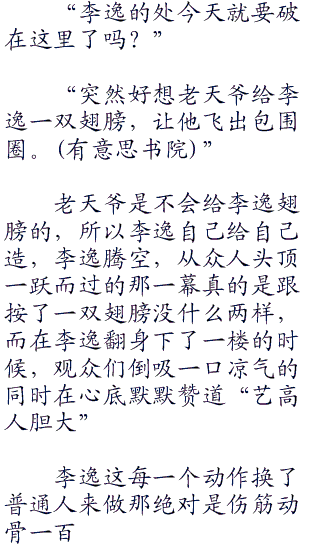 “李逸的处今天就要破
在这里了吗？”
“突然好想老天爷给李
逸一双翅膀，让他飞出包围
圈。(有意思书院)”
老天爷是不会给李逸翅
膀的，所以李逸自己给自己
造，李逸腾空，从众人头顶
一跃而过的那一幕真的是跟
按了一双翅膀没什么两样，
而在李逸翻身下了一楼的时
候，观众们倒吸一口凉气的
同时在心底默默赞道“艺高
人胆大”
李逸这每一个动作换了
普通人来做那绝对是伤筋动
骨一百